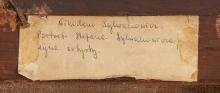 Nikodem Sylwanowicz
Portret Stefana Sylwanowicza,
syna artysty.